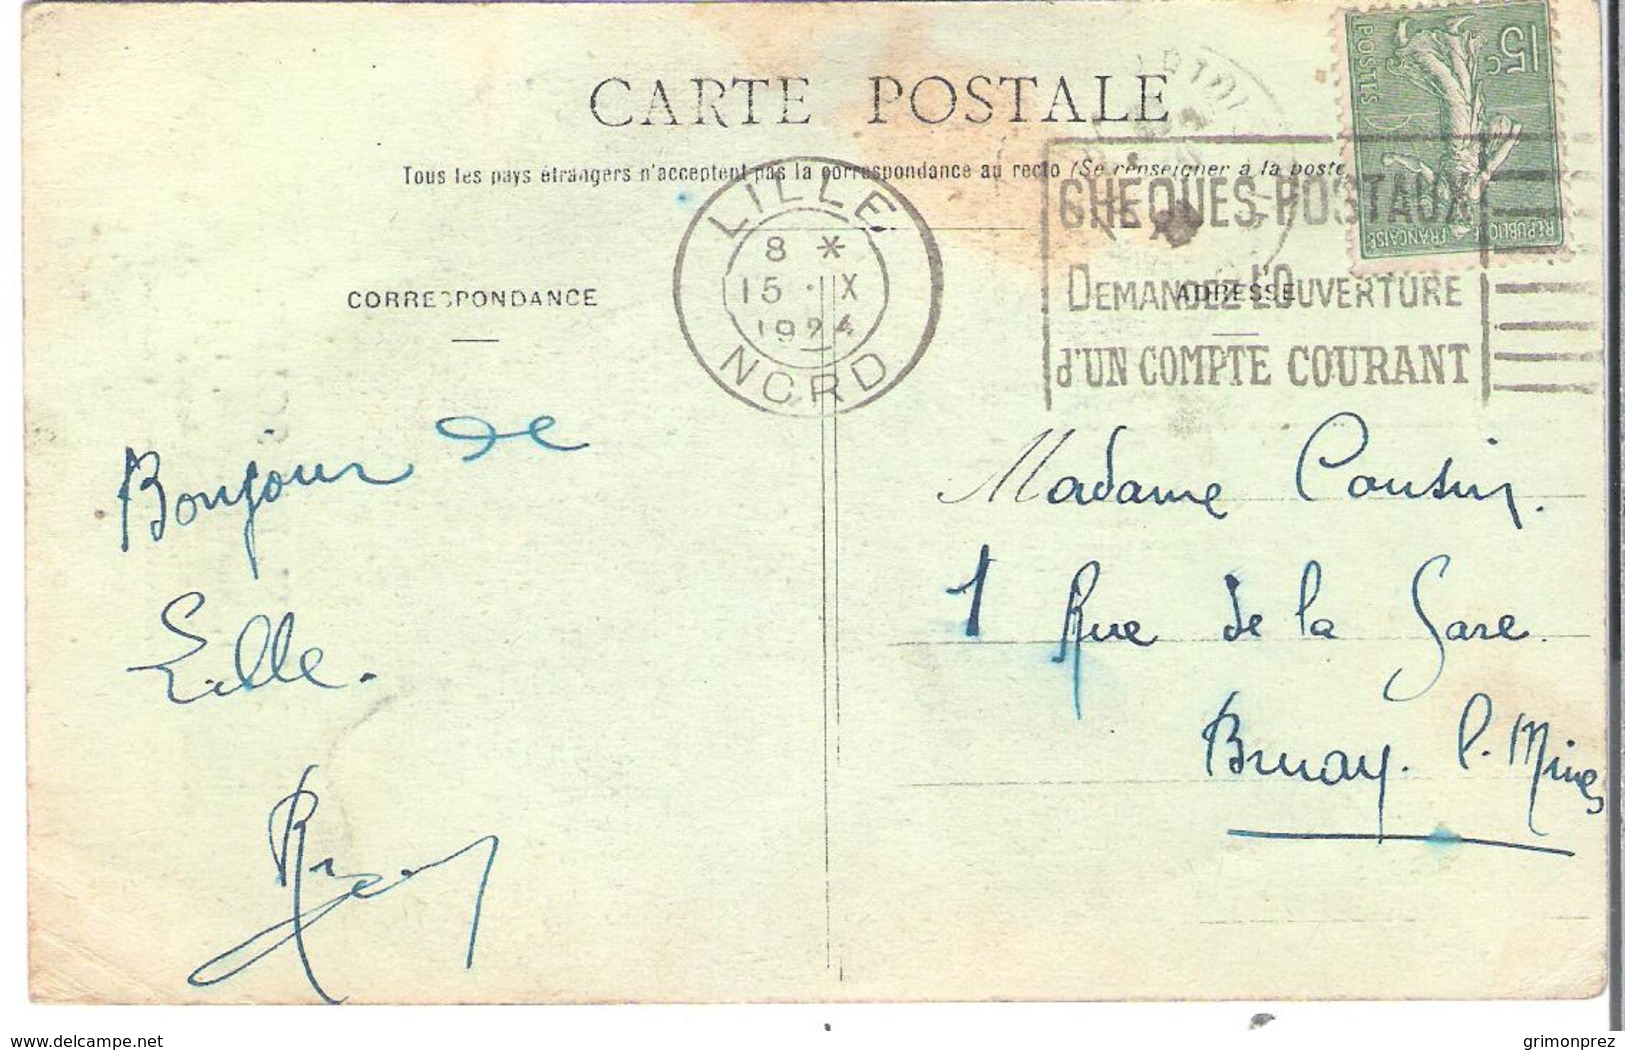 CARTE POSTALE
Tous les pays étrangers n'acceptent pas la correspondance au recto (Se renseigner à la poste
15c
POSTES
REPUBLIQUE FRANÇAISE
LILLE
8 *
15 · IX
1924
NORD
CHEQUES POSTAUX
DEMANDEZ L'OUVERTURE
d'UN COMPTE COURANT
CORRESPONDANCE
ADRESSE
Bonjour de
Lille.
Madame Cousin.
1 Rue de la Gare
Bruay. l. Mines
www.delcampe.net
grimonprez